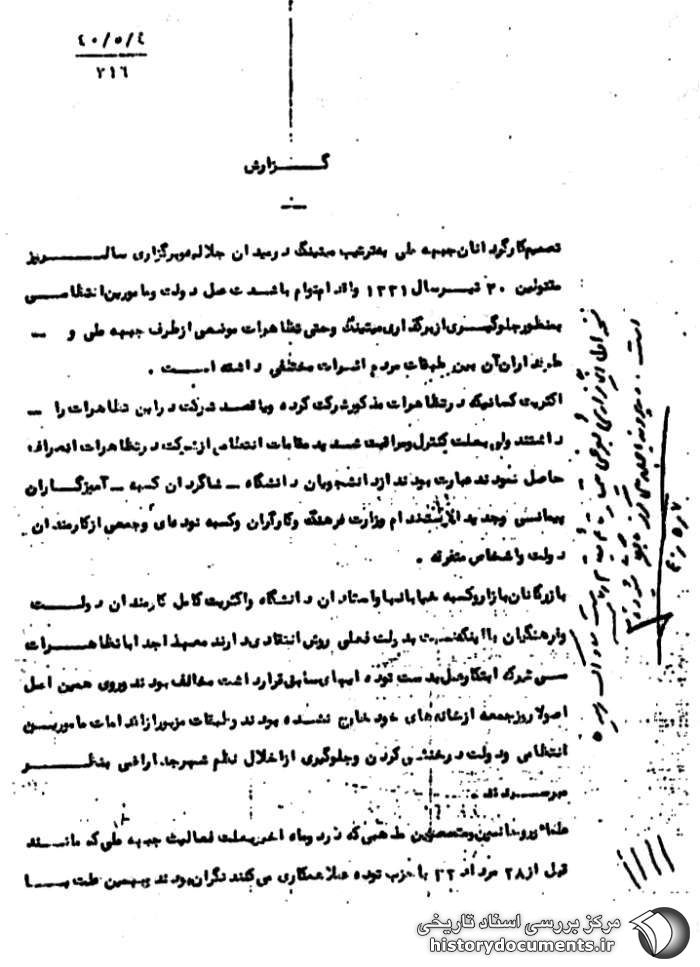 ۴۰/۵/۴
۳۱۶
گزارش
تصمیم کارگردانان جبهه ملی به ترتیب میتینگ در میدان جلالیه و برگزاری سالروز
مقتولین ۳۰ تیر سال ۱۳۳۱ و اقدام توام با شدت عمل دولت و مامورین انتظامی
بمنظور جلوگیری از برگذاری میتینگ و حتی تظاهرات موضعی از طرف جبهه ملی و -
طرفداران آن بین طبقات مردم اثرات مختلفی داشته است .
اکثریت کسانیکه در تظاهرات مذکور شرکت کرده و یا قصد شرکت در این تظاهرات را -
داشتند ولی بعلت کنترل و مراقبت شدید مقامات انتظامی از شرکت در تظاهرات انصراف
حاصل نمودند عبارت بودند از دانشجویان دانشگاه - شاگردان کسبه - آموزگاران
پیمانی و جدید الاستخدام وزارت فرهنگ و کارگران و کسبه توده‌ای و جمعی از کارمندان
دولت و اشخاص متفرقه .
بازرگانان بازار و کسبه خیابانها و استادان دانشگاه و اکثریت کامل کارمندان دولت
و فرهنگیان با اینکه نسبت بدولت فعلی روش انتقادی دارند معهذا جدا با تظاهرات
که ابتکار عمل بدست توده ایهای سابق قرار داشت مخالف بودند و روی همین اصل
اصولا روز جمعه از خانه‌های خود خارج نشده بودند و طبقات مزبور از اقدامات مامورین
انتظامی و دولت در خنثی کردن و جلوگیری از اخلال نظم شهر جدا راضی بنظر
میرسیدند .
علماء و روحانیین و متعصبین مذهبی که در دو ماه اخیر بعلت فعالیت جبهه ملی که مانند
قبل از ۲۸ مرداد ۳۲ با حزب توده عملا همکاری می کنند نگران بودند و بهمین علت با
مرکز بررسی اسناد تاریخی
historydocuments.ir